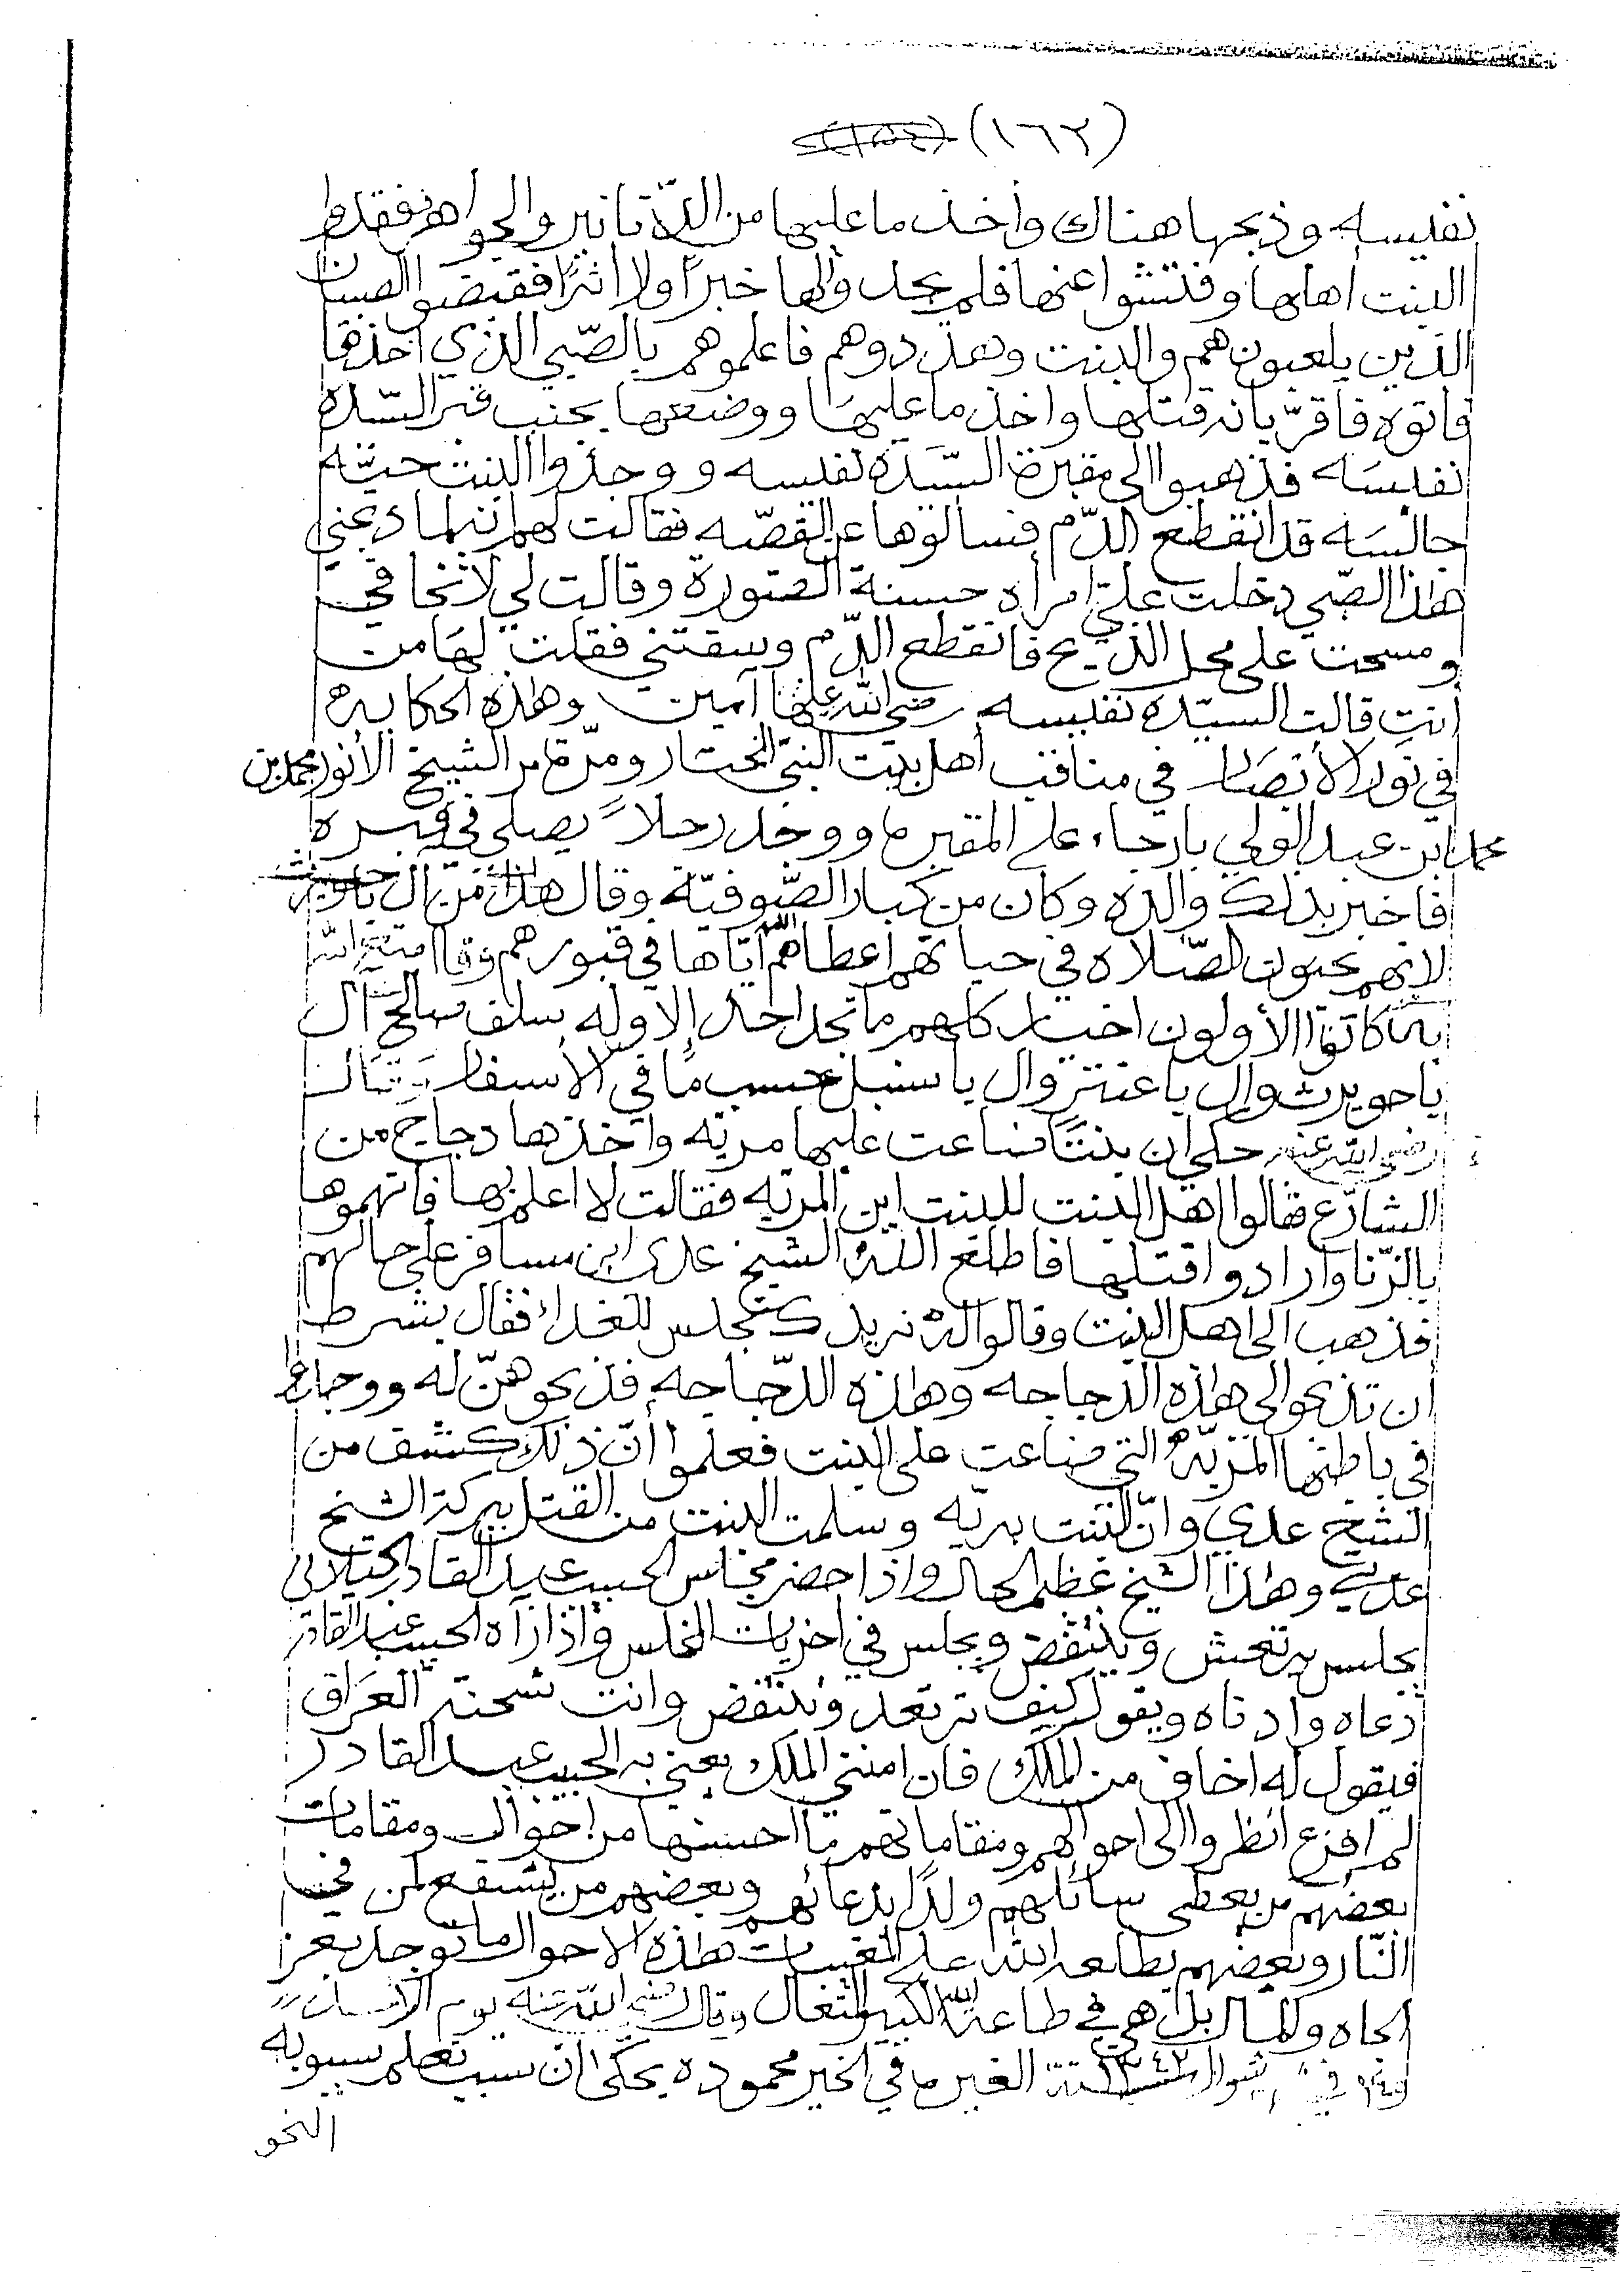 (١٦٢)
نفيسه وذبحها هناك وأخذ ما عليها من الدّنانير والجواهر ففقدوا
البنت أهلها وفتشوا عنها فلم يجدوا لها خبرًا ولا اثرًا فقبضوا الصبيان
الذين يلعبون هم والبنت وهددوهم فاعلموهم بالصّبي الذي اخذها
فاتوه فاقرّ بانه قتلها واخذ ما عليها ووضعها بجنب قبر السّيده
نفيسَه فذهبوا الى مقبرة السّيَدَه نفيسه ووجدوا البنت حيّه
جالسَه قد انقطع الدّم فسألوها عن القصّه فقالت لهم انه لما ذبحني
هاذا الصّبي دخلت عليّ امرأه حسنة الصّورة وقالت لي لا تخافي
ومسحت على محل الذّبح فانقطع الدّم وسقتني فقلت لهَا من
أنتِ قالت السيّده نفيسه رضي الله عنها آمين وهاذه الحكايه
في نوَر الأبصَار في مناقب أهل بيت النبيّ المختار ومرّة مر الشيخ الأنور محمد بن
محمد ابن عبد الولي بارجاء على المقبره ووجد رجلاً يصلي في قبره
فاخبر بذلك والده وكان من كبار الصّوفيّة وقال هاذا من آل
لانهم يحبون الصّلاه في حياتهم اعطاهم الله ايّاها في قبورهم
كانوا الأولون اخيار كلهم ما تجد احد إلا وله سلف صالح آل
باحويرث وال باعنتر وال باسنبل حسب ما في الأسفار وقال
رضي الله عنه حكي ان بنتًا ضاعت عليها مريّه واخذها دجاج من
الشارع فقالوا اهل البنت للبنت اين المريّه فقالت لا اعلم بها فاتهموها
بالزّنا وارادوا قتلها فاطلع اللهُ الشيخ عدي ابن مسافر على حالهم
فذهب الى اهل البنت وقالوا له نريدك تجلس للغداء فقال بشرط
ان تذبحوا لي هاذه الدجاجه وهاذه الدّجاجه فذبحوهنّ له ووجدوا
في باطنها المريّهُ التي ضاعت على البنت فعلموا أنّ ذلك كشف من
الشيخ عدي وانّ البنت بريّه وسلمت البنت من القتل ببركة الشيخ
عدي وهاذا الشيخ عظيم الحال واذا حضر مجلس الحبيب عبد القادر الجيلاني
يجلس يرتعش وينتفض ويجلس في اخريات المجلس واذا رآه الحبيب عبد القادر
دعاه وادناه ويقول كيف ترتعد وتنتفض وانت شحنة العرَاق
فيقول له اخاف من الملك فان امنني الملك يعني به الحبيب عبد القادر
لم افزع انظروا الى احوالهم ومقاماتهم ما احسنها من احوال ومقامات
بعضهم من يعطى سائلهم ولدًا بدعائهم وبعضهم من يشفع لمن في
النّار وبعضهم يطلعه الله على المغيبات هاذه الاحوال ما توجد بعز
الجاه والمال بل هي في طاعة الله الكبير المتعال وقال رضي الله عنه يوم
في شوال سنة ١٣٤٢ الغيره في الخير محموده يحكى ان سبب تعلم سيبويه
النحو